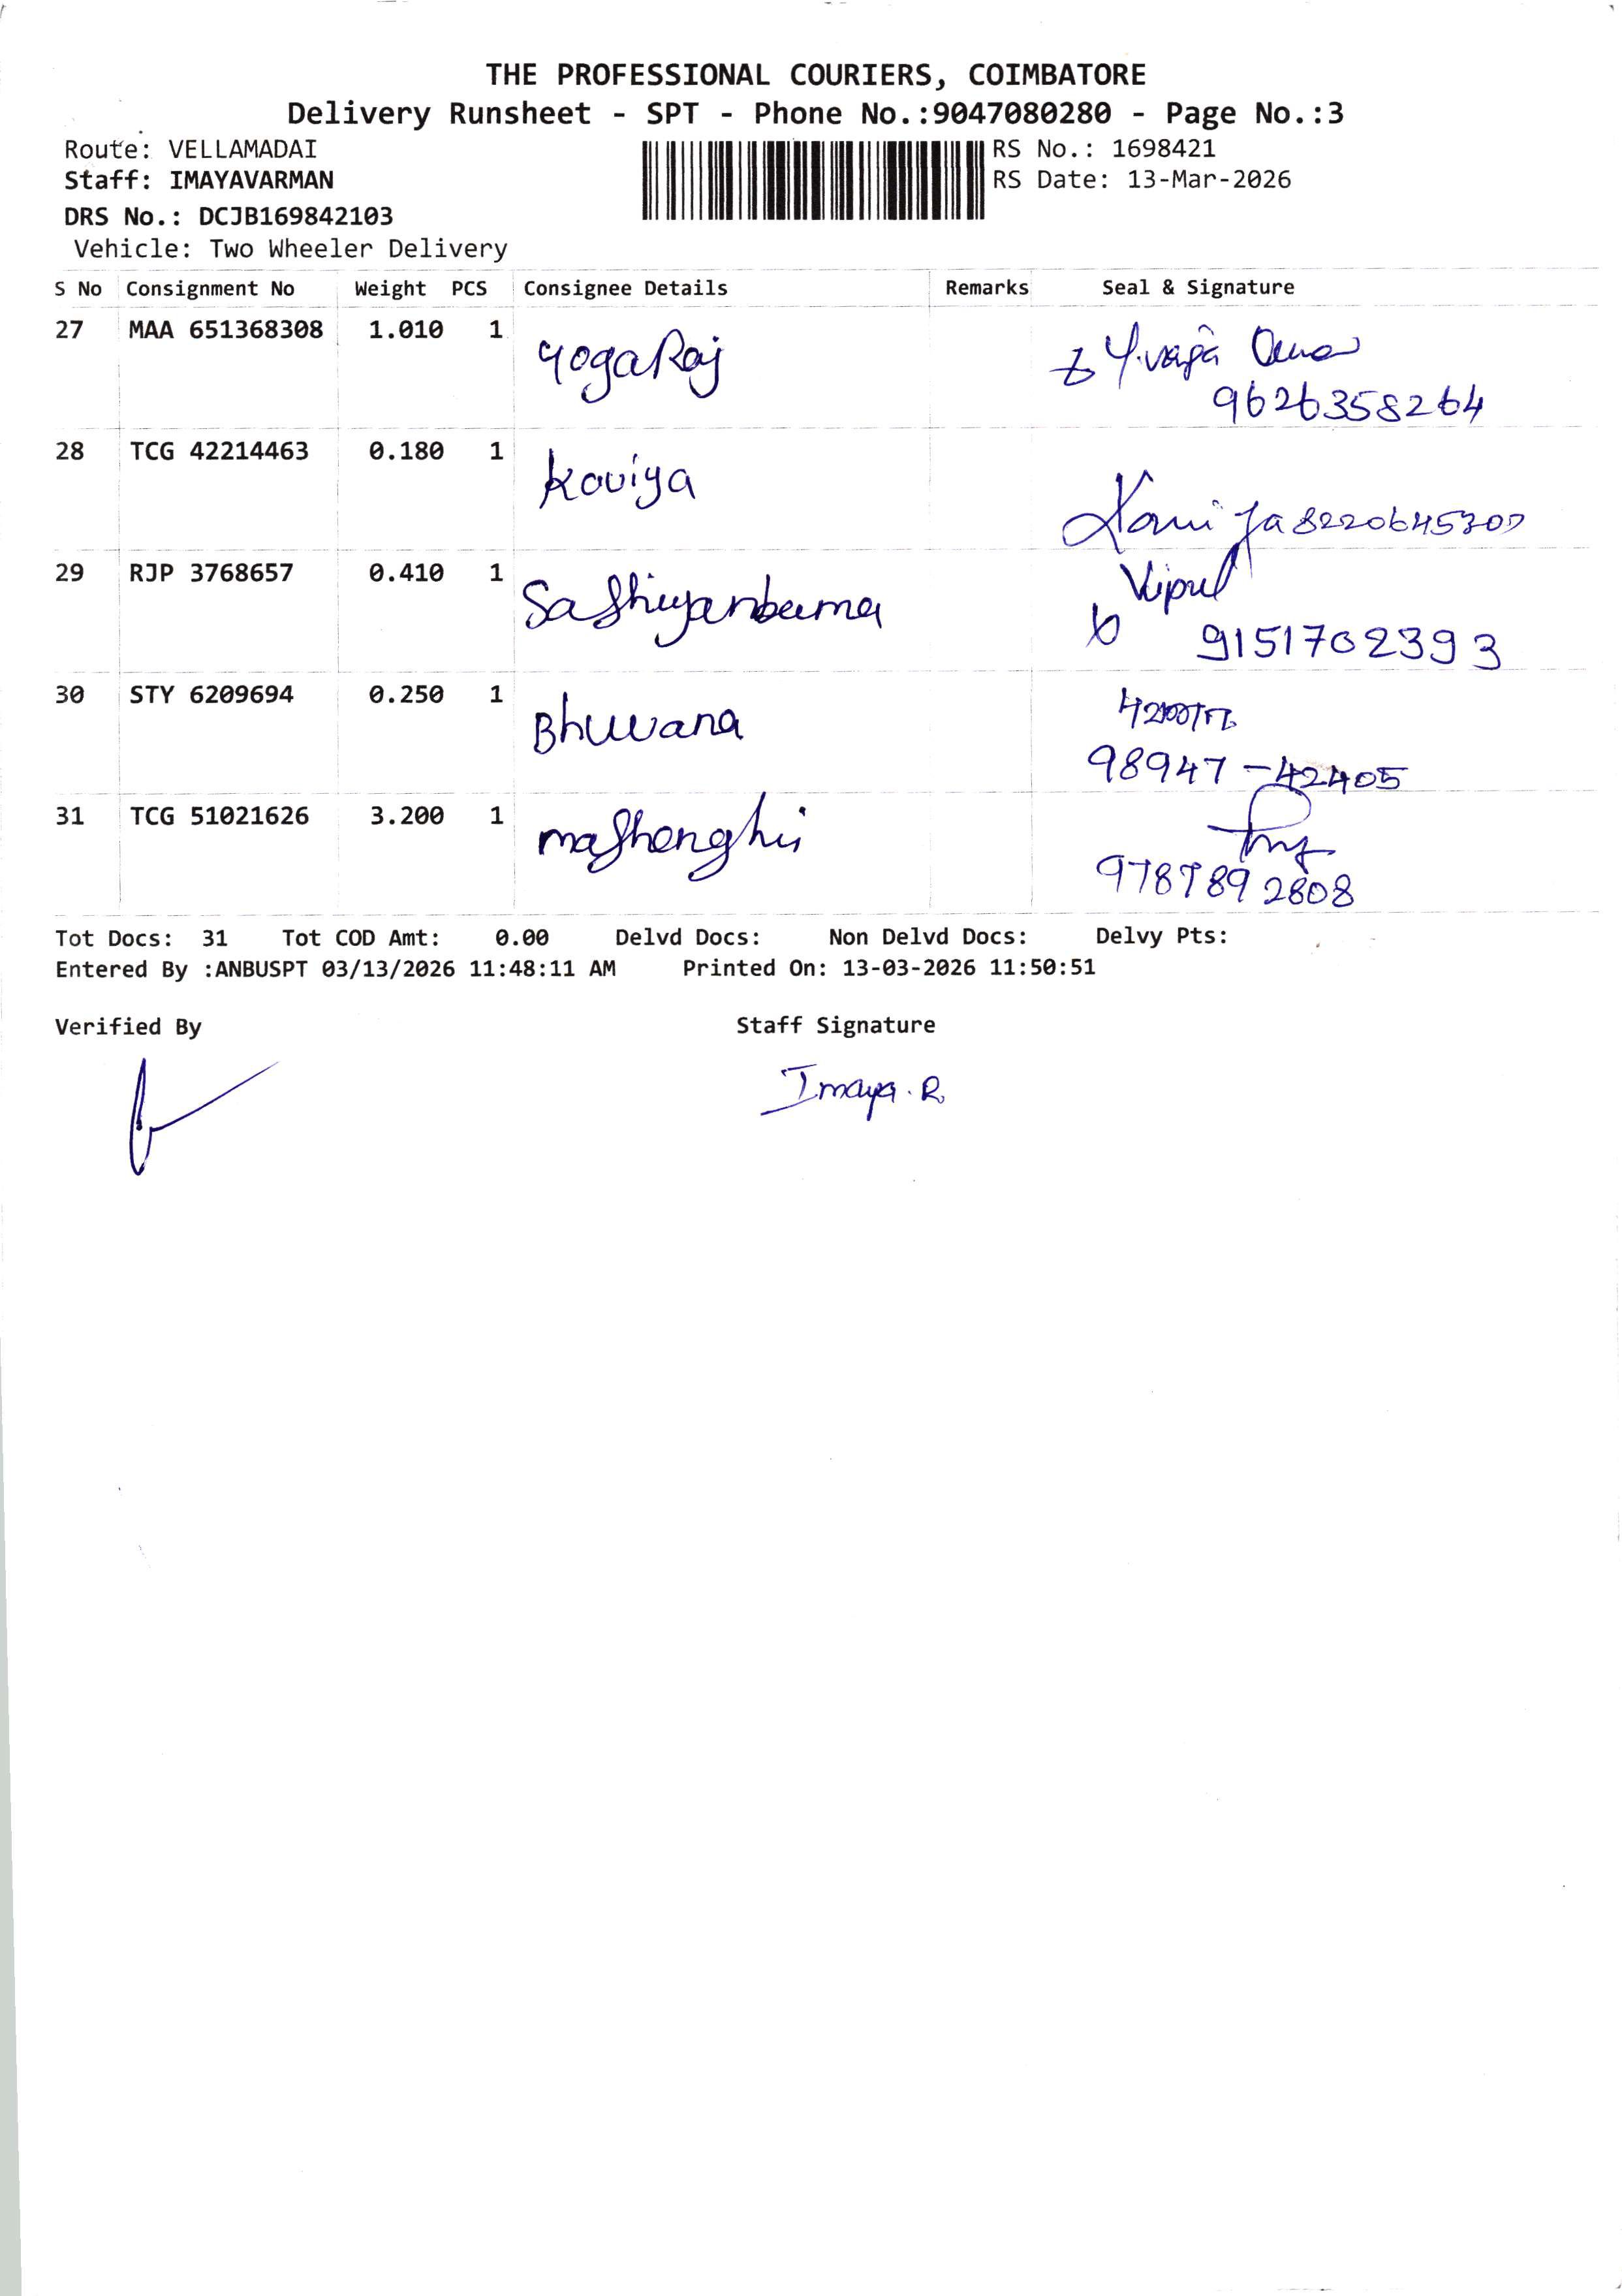 THE PROFESSIONAL COURIERS, COIMBATORE
Delivery Runsheet - SPT - Phone No.:9047080280 - Page No.:3
Route: VELLAMADAI
RS No.: 1698421
Staff: IMAYAVARMAN
RS Date: 13-Mar-2026
DRS No.: DCJB169842103
Vehicle: Two Wheeler Delivery
S No Consignment No Weight PCS Consignee Details Remarks Seal & Signature
27 MAA 651368308 1.010 1 YogaRaj
9626358264
28 TCG 42214463 0.180 1 Kaviya
29 RJP 3768657 0.410 1
Vipul
9151702393
30 STY 6209694 0.250 1 Bhuvana
98947-42405
31 TCG 51021626 3.200 1
9787892808
Tot Docs: 31 Tot COD Amt: 0.00 Delvd Docs: Non Delvd Docs: Delvy Pts:
Entered By :ANBUSPT 03/13/2026 11:48:11 AM Printed On: 13-03-2026 11:50:51
Verified By Staff Signature
Imaya.R